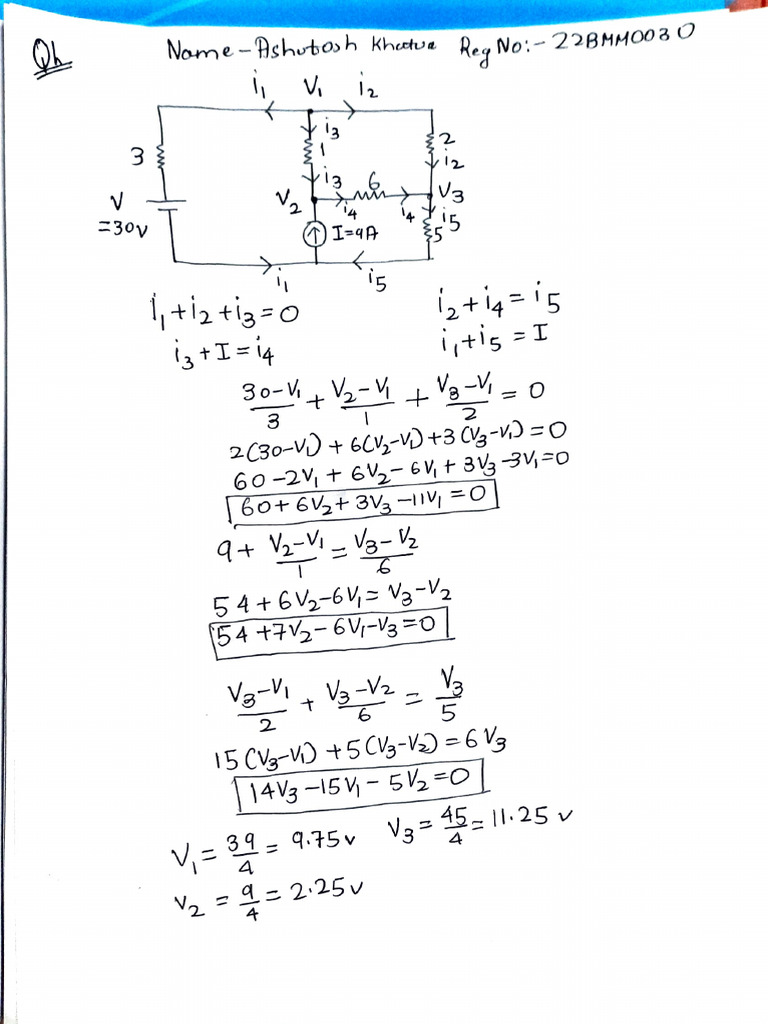 Qh
Name - Ashutosh Khatua Reg No:- 22BMM0030
i₁ V₁ i₂
i₃
3 1 2
i₂
i₃ 6
V V₂ V₃
=30v i₄ i₄ i₅
I=9A 5
i₁ i₅
i₁+i₂+i₃=0 i₂+i₄=i₅
i₃+I=i₄ i₁+i₅=I
(30-V₁)/3 + (V₂-V₁)/1 + (V₃-V₁)/2 = 0
2(30-V₁) + 6(V₂-V₁)+3(V₃-V₁)=0
60-2V₁+6V₂-6V₁+3V₃-3V₁=0
60+6V₂+3V₃-11V₁=0
9+ (V₂-V₁)/1 = (V₃-V₂)/6
54+6V₂-6V₁=V₃-V₂
54+7V₂-6V₁-V₃=0
(V₃-V₁)/2 + (V₃-V₂)/6 = V₃/5
15(V₃-V₁)+5(V₃-V₂)=6V₃
14V₃-15V₁-5V₂=0
V₁ = 39/4 = 9.75v V₃ = 45/4 = 11.25 v
V₂ = 9/4 = 2.25v